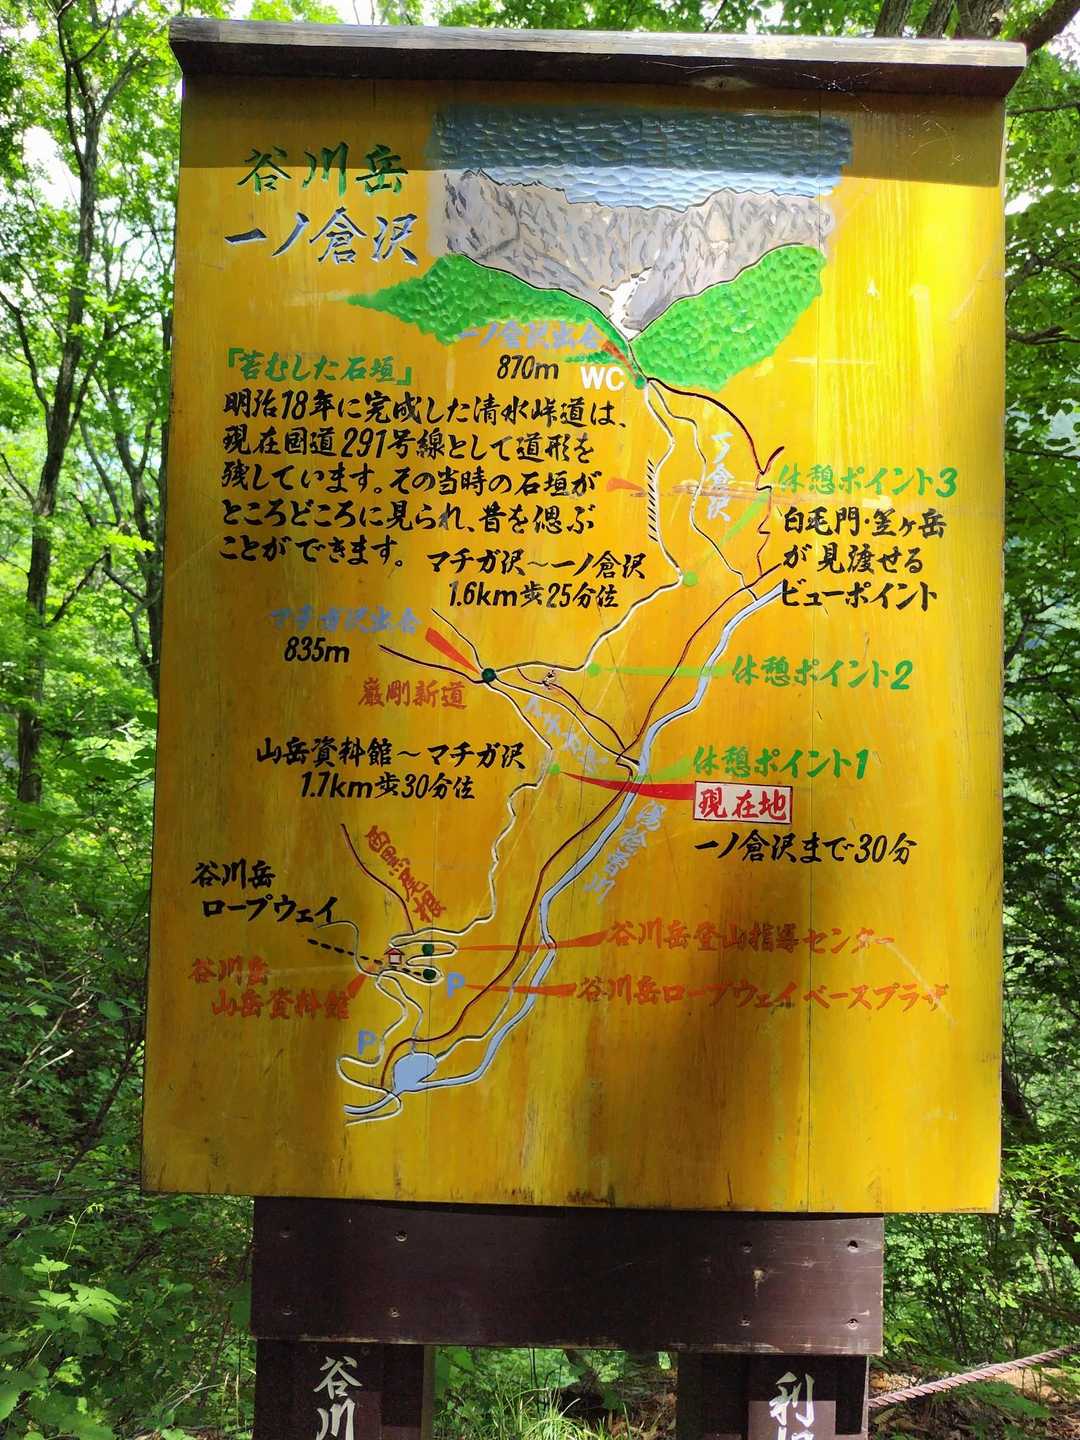 谷川岳
一ノ倉沢
一ノ倉沢出合
870m
WC
『苔むした石垣』
明治18年に完成した清水峠道は、
現在国道291号線として道形を
残しています。その当時の石垣が
ところどころに見られ、昔を偲ぶ
ことができます。
一ノ倉沢
休憩ポイント3
白毛門・笠ヶ岳
が見渡せる
ビューポイント
マチガ沢～一ノ倉沢
1.6km歩25分位
マチガ沢出合
835m
巌剛新道
休憩ポイント2
マチガ沢
山岳資料館～マチガ沢
1.7km歩30分位
休憩ポイント1
現在地
一ノ倉沢まで30分
湯桧曽川
西黒尾根
谷川岳
ロープウェイ
谷川岳登山指導センター
谷川岳
山岳資料館
P
谷川岳ロープウェイベースプラザ
P
谷川
利